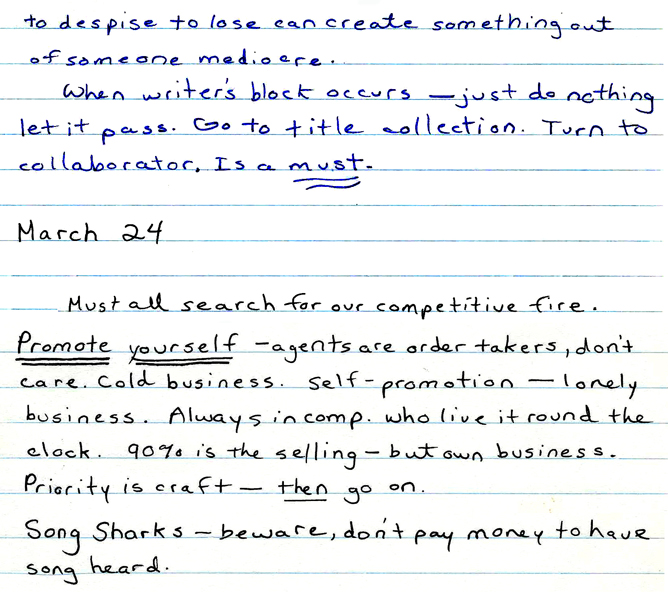 to despise to lose can create something out
of someone mediocre.
When writer's block occurs — just do nothing
let it pass. Go to title collection. Turn to
collaborator. Is a must.
March 24
Must all search for our competitive fire.
Promote yourself - agents are order takers, don't
care. Cold business. Self-promotion — lonely
business. Always in comp. who live it round the
clock. 90% is the selling - but own business.
Priority is craft — then go on.
Song Sharks - beware, don't pay money to have
song heard.